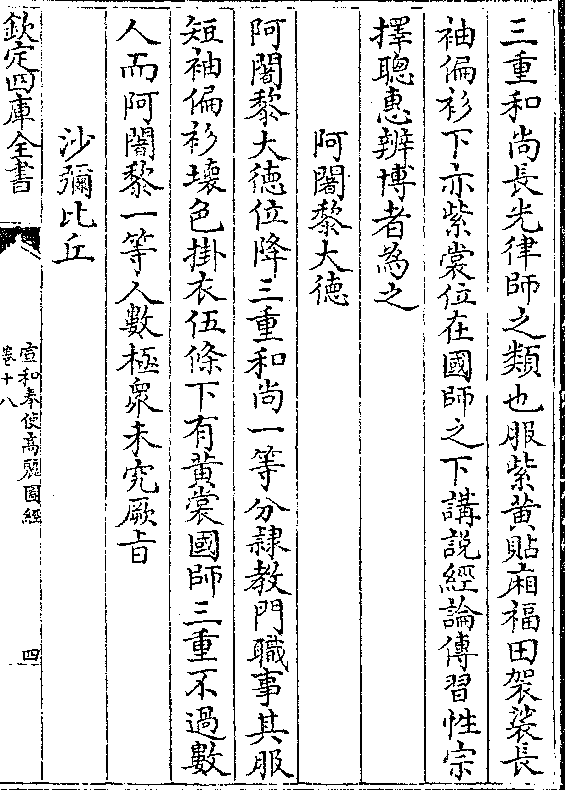 三重和尚長老律師之類也服紫黃貼廂福田袈裟長
袖偏衫下亦紫裳位在國師之下講說經論傳習性宗
擇聰惠辨博者為之
阿闍黎大德
阿闍黎大德位降三重和尚一等分隷教門職事其服
短袖偏衫壊色掛衣伍條下有黃裳國師三重不過數
人而阿闍黎一等人數極衆未究厥旨
沙彌比丘
欽定四庫全書
宣和奉使高麗圖經
卷十八
四